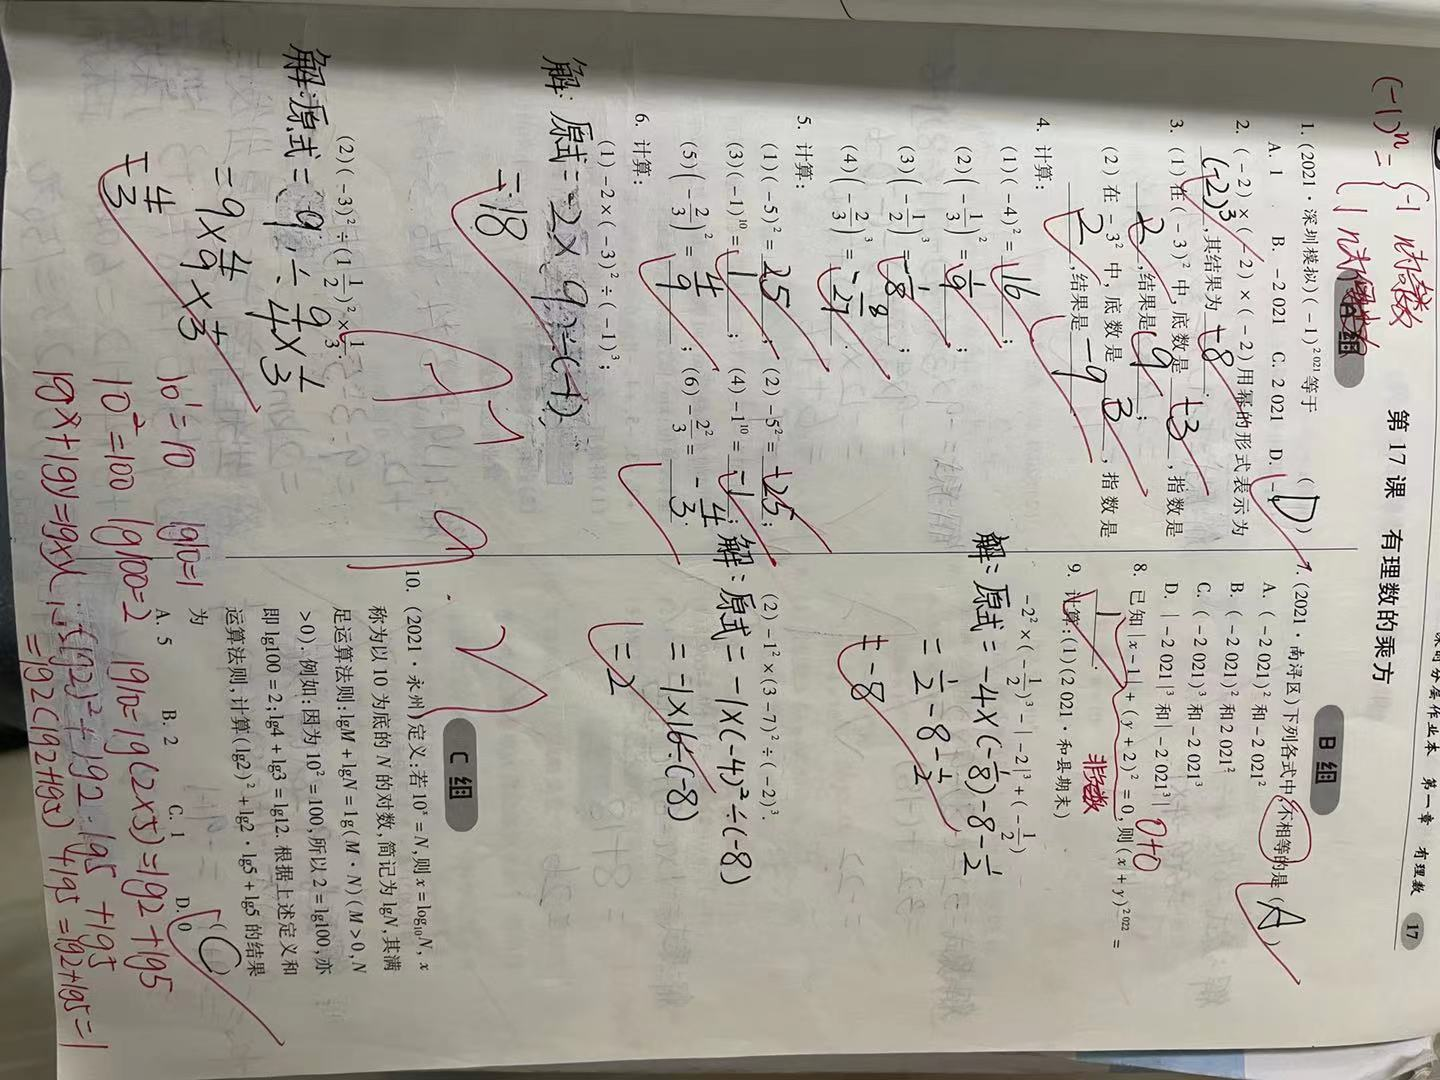 课时分层作业本 第一章 有理数 17
第17课 有理数的乘方
(-1)ⁿ = { -1 n为奇数
1 n为偶数
A组
1. (2021·深圳模拟)(-1)²⁰²¹等于 (D)
A. 1 B. -2 021 C. 2 021 D. -1
2. (-2)×(-2)×(-2)用幂的形式表示为
(-2)³,其结果为 -8 .
3. (1)在(-3)²中,底数是 -3 ,指数是
2 ,结果是 9 ;
(2)在-3²中,底数是 3 ,指数是
2 ,结果是 -9 .
4. 计算:
(1)(-4)²= 16 ;
(2)(-1/3)²= 1/9 ;
(3)(-1/2)³= -1/8 ;
(4)(-2/3)³= -8/27 .
5. 计算:
(1)(-5)²= 25 ; (2)-5²= -25 ;
(3)(-1)¹⁰= 1 ; (4)-1¹⁰= -1 ;
(5)(-2/3)²= 4/9 ; (6)-2²/3= -4/3 .
6. 计算:
(1)-2×(-3)²÷(-1)³;
解:原式=-2×9÷(-1)
=18
(2)(-3)²÷(1 1/2)²×1/3.
解:原式=9÷9/4×1/3
=9×4/9×1/3
=4/3
B组
7. (2021·南浔区)下列各式中,不相等的是 (A)
A. (-2 021)²和-2 021²
B. (-2 021)²和2 021²
C. (-2 021)³和-2 021³
D. |-2 021|³和|-2 021³|
8. 已知|x-1|+(y+2)²=0,则(x+y)²⁰²²=
1 .
0+0
非负数
9. 计算:(1)(2021·和县期末)
-2²×(-1/2)³-|-2|³+(-1/2)
解:原式=-4×(-1/8)-8-1/2
=1/2-8-1/2
=-8
(2)-1²×(3-7)²÷(-2)³.
解:原式=-1×(-4)²÷(-8)
=-1×16÷(-8)
=2
C组
10. (2021·永州)定义:若10ˣ=N,则x=log₁₀N,x
称为以10为底的N的对数,简记为lgN,其满
足运算法则:lgM+lgN=lg(M·N)(M>0,N
>0). 例如:因为10²=100,所以2=lg100,亦
即lg100=2;lg4+lg3=lg12. 根据上述定义和
运算法则,计算(lg2)²+lg2·lg5+lg5的结果
为 (C)
A. 5 B. 2 C. 1 D. 0
10¹=10 lg10=1
10²=100 lg100=2 lg10=lg(2×5)=lg2+lg5
lgx+lgy=lgxy ∴(lg2)²+lg2·lg5+lg5
=lg2(lg2+lg5)+lg5=lg2+lg5=1